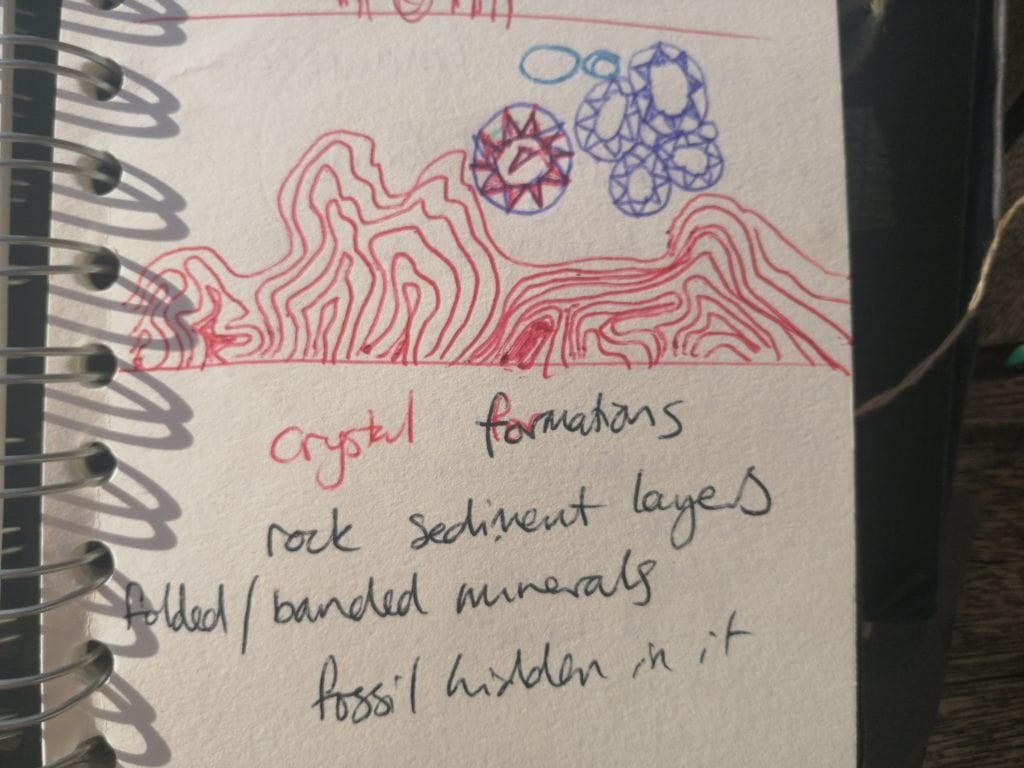 crystal formations
rock sediment layers
folded/banded minerals
fossil hidden in it